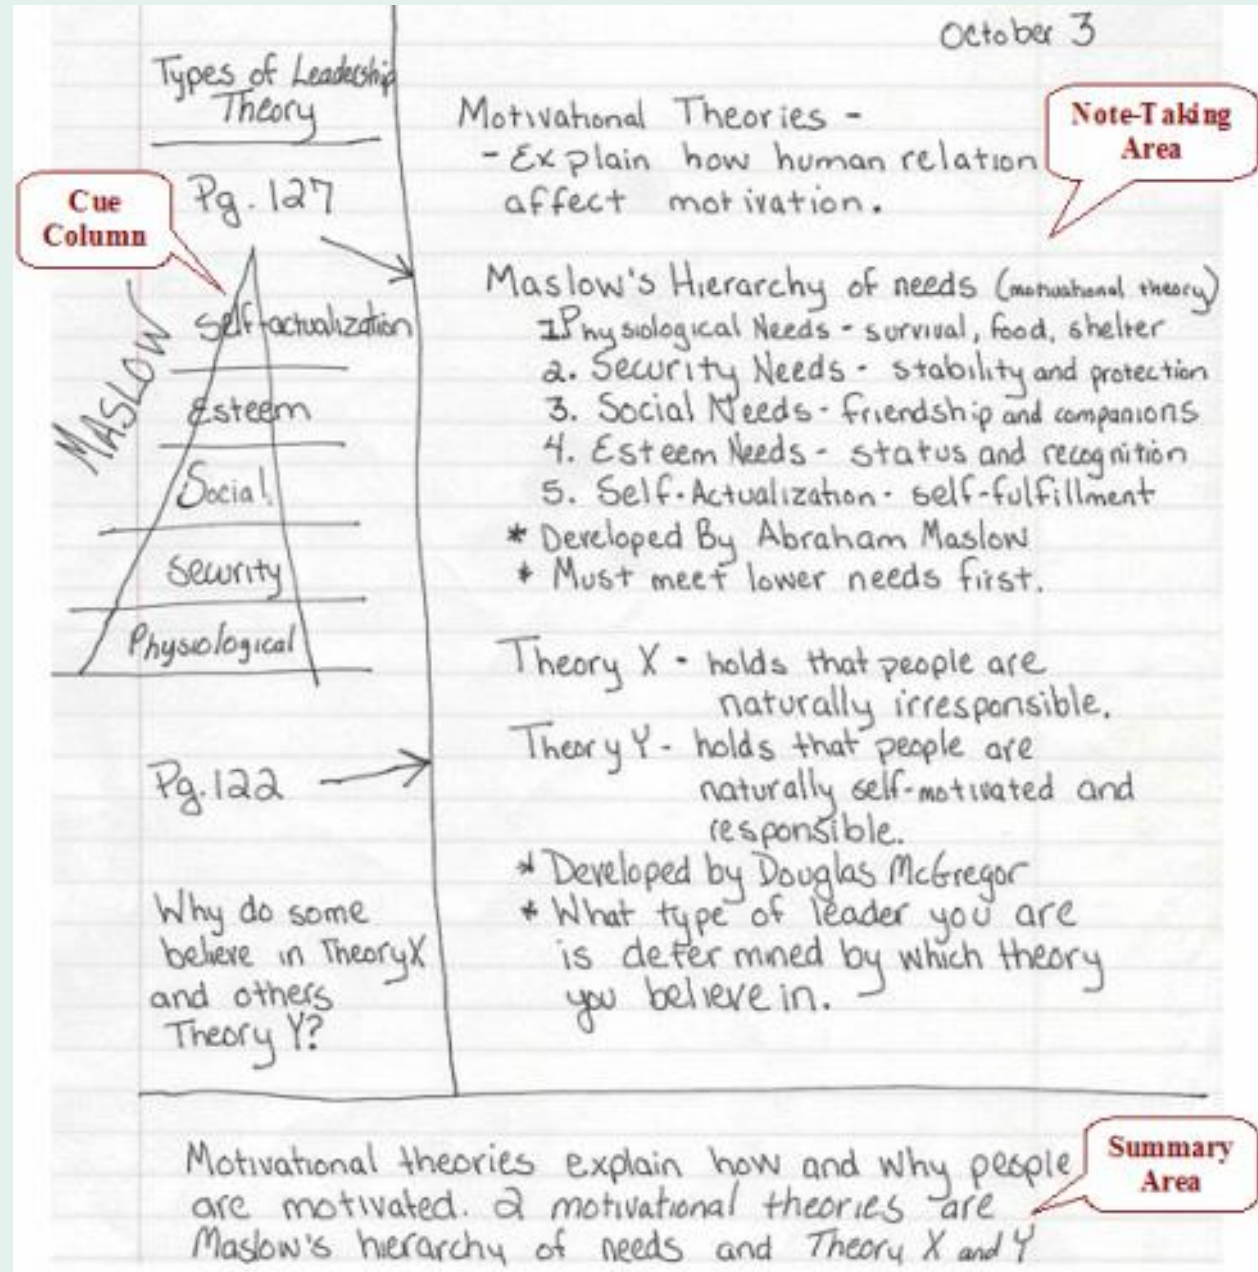 October 3
Types of Leadership
Theory
Pg. 127
Cue
Column
MASLOW
Self-actualization
Esteem
Social
Security
Physiological
Pg. 122
Why do some
believe in Theory X
and others
Theory Y?
Note-Taking
Area
Motivational Theories -
- Explain how human relation
affect motivation.
Maslow's Hierarchy of needs (motivational theory)
1 Physiological Needs - survival, food, shelter
2. Security Needs - stability and protection
3. Social Needs - friendship and companions
4. Esteem Needs - status and recognition
5. Self-Actualization - self-fulfillment
* Developed By Abraham Maslow
* Must meet lower needs first.
Theory X - holds that people are
naturally irresponsible.
Theory Y - holds that people are
naturally self-motivated and
responsible.
* Developed by Douglas McGregor
* What type of leader you are
is determined by which theory
you believe in.
Motivational theories explain how and why people
are motivated. 2 motivational theories are
Maslow's hierarchy of needs and Theory X and Y
Summary
Area